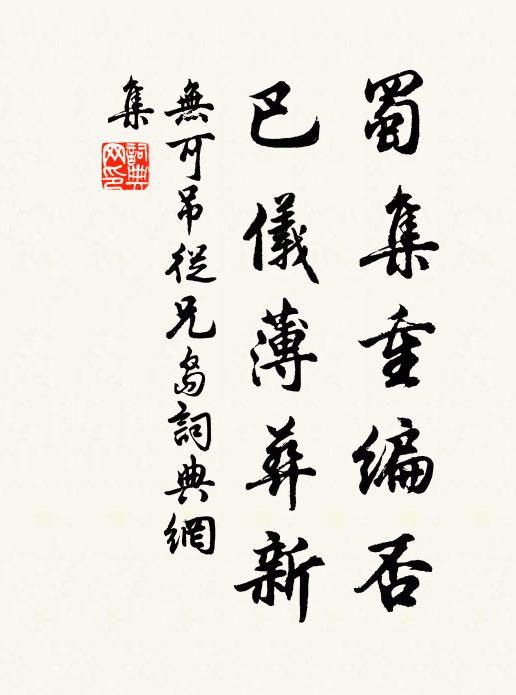 蜀集重编否
巴儀薄葬新
無可吊從兄島詞典網
集
詞典网印